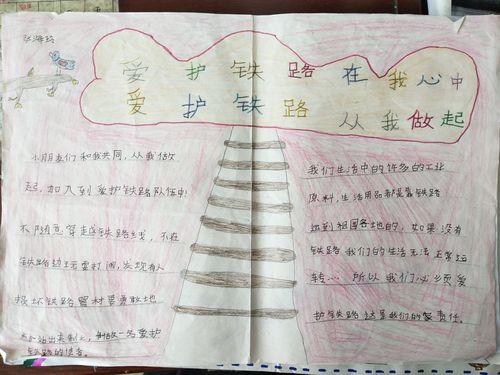 张海玲
爱护铁路在我心中
爱护铁路 从我做起
小朋友们和我共同,从我做
起,加入到爱护铁路队伍中!
不随意穿越铁路线,不在
铁路边玩耍打闹,发现有人
损坏铁路器材要勇敢地
站出来制止,争做一名爱护
铁路的使者。
我们生活中的许多的工业
原料,生活用品都是靠铁路
运到祖国各地的,如果没有
铁路我们的生活无法正常运
转……所以我们必须爱
护铁路这是我们的责任。